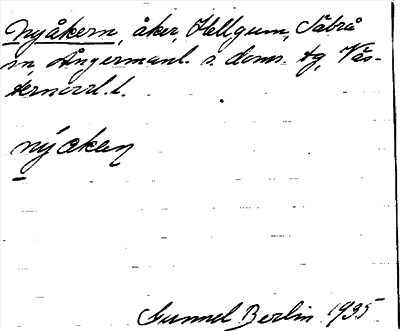 Nyåkern, åker, Hellgum, Säbrå
sn, Ångermanl. s. doms. tg, Väs-
ternorrl. l.
nýåkeṇ
Gunnel Berlin 1935